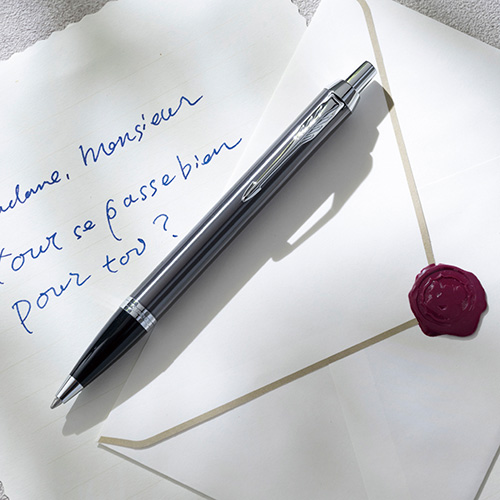 adame, Monsieur
Tour se passe bien
Pour toi ?